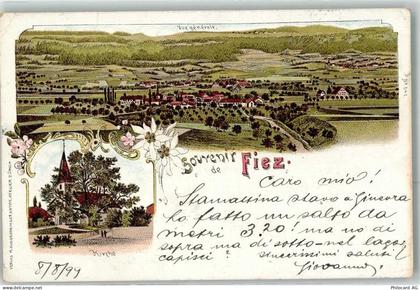 Vue générale.
Souvenir
de
Fiez.
Caro mio!
Stamassina stavo a Ginevra
ho fatto un salto da
metri 3.20! ma no di
sopra ma di sotto - nel lago
capisci? Sincerissimi saluti!
Giovanni
Kirche
8/8/99